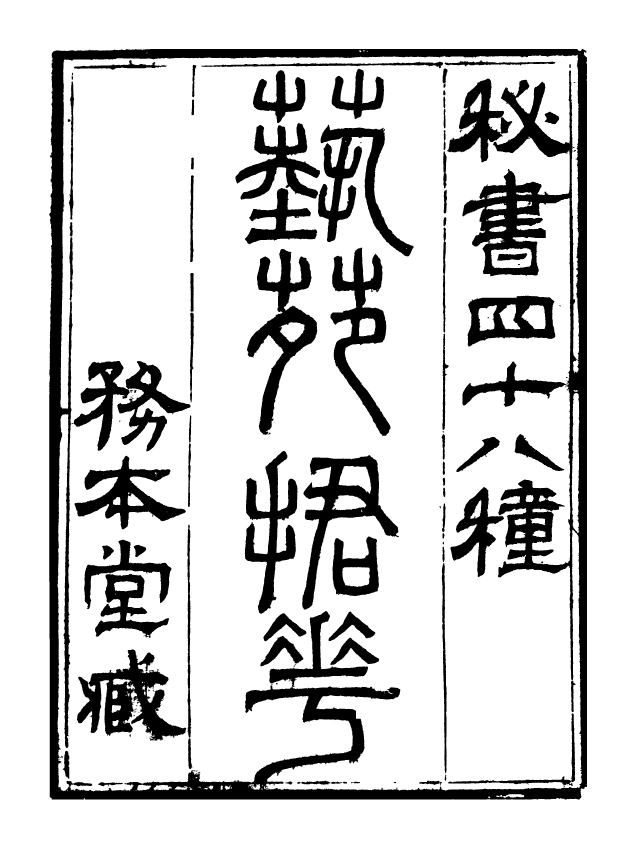 秘書四十八種
藝苑捃華
務本堂臧